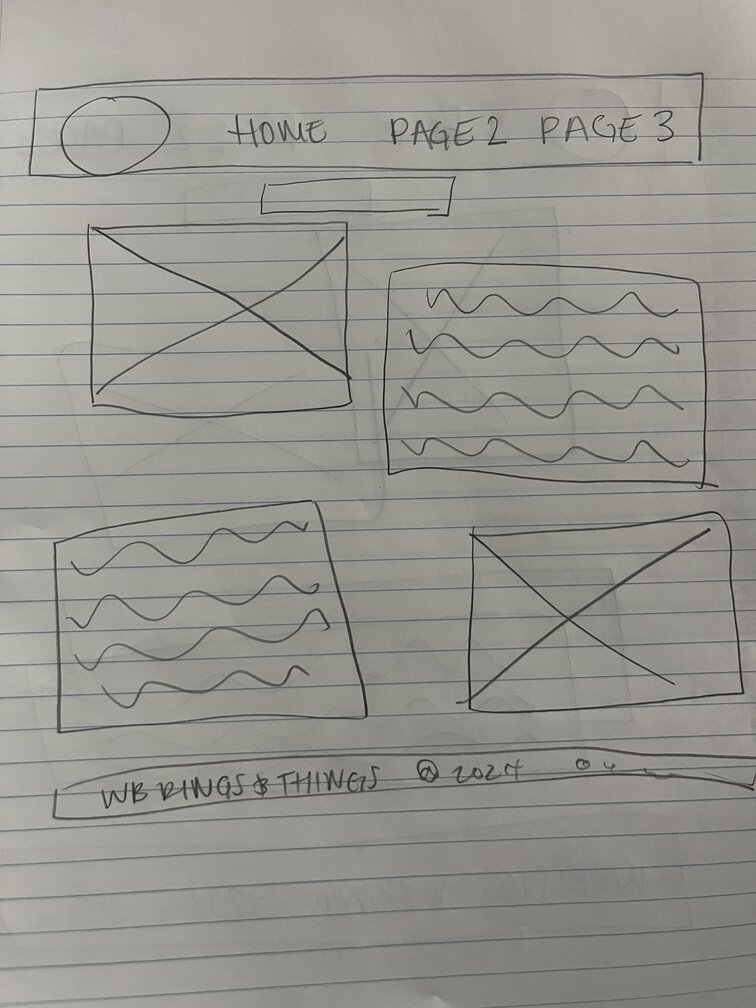 HOME PAGE 2 PAGE 3
WB RINGS & THINGS © 2024